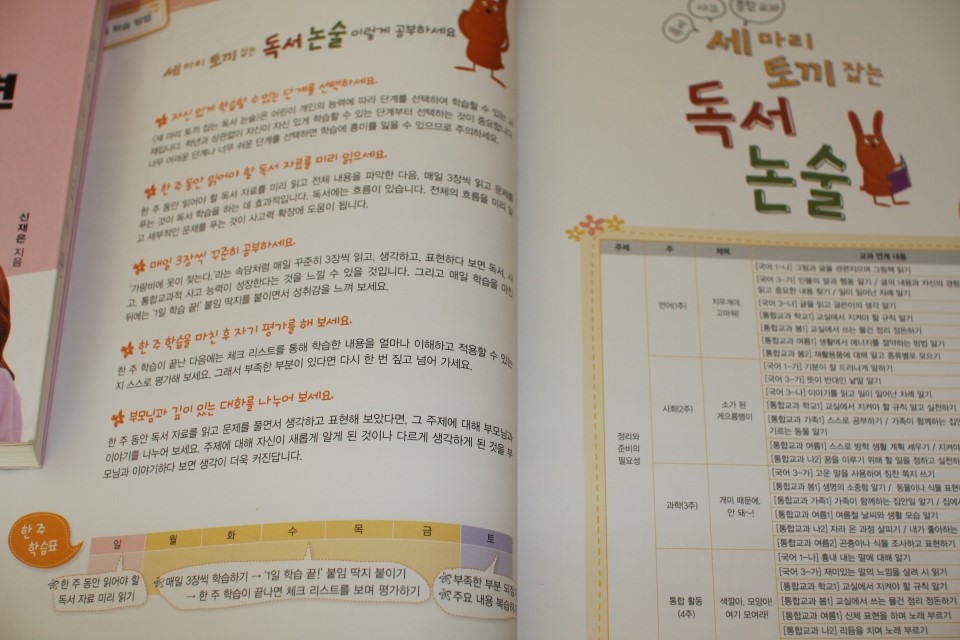 신재은 지음
학습 방법
세 마리 토끼 잡는 독서 논술 이렇게 공부하세요
자신 있게 학습할 수 있는 단계를 선택하세요.
〈세 마리 토끼 잡는 독서 논술〉은 어린이 개인의 능력에 따라 단계를 선택하여 학습할 수 있는 교
재입니다. 학년과 상관없이 자신이 자신 있게 학습할 수 있는 단계부터 선택하는 것이 중요합니다.
너무 어려운 단계나 너무 쉬운 단계를 선택하면 학습에 흥미를 잃을 수 있으므로 주의하세요.
한 주 동안 읽어야 할 독서 자료를 미리 읽으세요.
한 주 동안 읽어야 할 독서 자료를 미리 읽고 전체 내용을 파악한 다음, 매일 3장씩 읽고 문제를
푸는 것이 독서 학습을 하는 데 효과적입니다. 독서에는 흐름이 있습니다. 전체의 흐름을 미리 알
고 세부적인 문제를 푸는 것이 사고력 확장에 도움이 됩니다.
매일 3장씩 꾸준히 공부하세요.
'가랑비에 옷이 젖는다.'라는 속담처럼 매일 꾸준히 3장씩 읽고, 생각하고, 표현하다 보면 독서, 사
고, 통합교과적 사고 능력이 성장한다는 것을 느낄 수 있을 것입니다. 그리고 매일 학습을 마친
뒤에는 '1일 학습 끝!' 붙임 딱지를 붙이면서 성취감을 느껴 보세요.
한 주 학습을 마친 후 자기 평가를 해 보세요.
한 주 학습이 끝난 다음에는 체크 리스트를 통해 학습한 내용을 얼마나 이해하고 적용할 수 있는
지 스스로 평가해 보세요. 그래서 부족한 부분이 있다면 다시 한 번 짚고 넘어 가세요.
부모님과 깊이 있는 대화를 나누어 보세요.
한 주 동안 독서 자료를 읽고 문제를 풀면서 생각하고 표현해 보았다면, 그 주제에 대해 부모님과
이야기를 나누어 보세요. 주제에 대해 자신이 새롭게 알게 된 것이나 다르게 생각하게 된 것을 부
모님과 이야기하다 보면 생각이 더욱 커진답니다.
한 주
학습표
일 월 화 수 목 금 토
한 주 동안 읽어야 할
독서 자료 미리 읽기
매일 3장씩 학습하기 → '1일 학습 끝!' 붙임 딱지 붙이기
→ 한 주 학습이 끝나면 체크 리스트를 보며 평가하기
부족한 부분
주요 내용 복습하
독서 사고 통합 교과
세 마리
토끼 잡는
독서
논술
주제 주 제목 교과 연계 내용
정리와
준비의
필요성
언어(1주)
지우개야,
고마워!
[국어 1-나] 그림과 글을 관련지으며 그림책 읽기
[국어 3-가] 인물의 말과 행동 알기 / 글의 내용과 자신의 경험
읽고 중요한 내용 찾기 / 일이 일어난 차례 알기
[국어 3-나] 글을 읽고 글쓴이의 생각 알기
[통합교과 학교1] 교실에서 지켜야 할 규칙 알기
[통합교과 봄1] 교실에서 쓰는 물건 정리 정돈하기
[통합교과 여름1] 생활에서 에너지를 절약하는 방법 알기
[통합교과 봄2] 재활용품에 대해 알고 종류별로 모으기
사회(2주)
소가 된
게으름뱅이
[국어 1-가] 기분이 잘 드러나게 말하기
[국어 3-가] 뜻이 반대인 낱말 알기
[국어 3-나] 이야기를 읽고 일이 일어난 차례 알기
[통합교과 학교1] 교실에서 지켜야 할 규칙 알고 실천하기
[통합교과 가족1] 스스로 공부하기 / 가족이 함께하는 집안
기르는 동물 알기
[통합교과 여름1] 스스로 방학 생활 계획 세우기 /
[통합교과 나2] 꿈을 이루기 위해 할 일을 정하고 실천하
과학(3주)
개미 때문에,
안 돼~!
[국어 3-가] 고운 말을 사용하여 칭찬 쪽지 쓰기
[통합교과 봄1] 생명의 소중함 알기 / 동물이나 식물 표현
[통합교과 가족1] 가족이 함께하는 집안일 알기 / 집에서
[통합교과 여름1] 여름철 날씨와 생활 모습 알기
[통합교과 나2] 자라 온 과정 살피기 / 내가 좋아하는
[통합교과 여름2] 곤충이나 식물 조사하고 표현하기
통합 활동
(4주)
색깔아, 모양아!
여기 모여라!
[국어 1-나] 흉내 내는 말에 대해 알기
[국어 3-가] 재미있는 말의 느낌을 살려 시 읽기
[통합교과 학교1] 교실에서 지켜야 할 규칙 알기
[통합교과 봄1] 교실에서 쓰는 물건 정리 정돈하기
[통합교과 여름1] 신체 표현을 하며 노래 부르기
[통합교과 나2] 리듬을 치며 노래 부르기